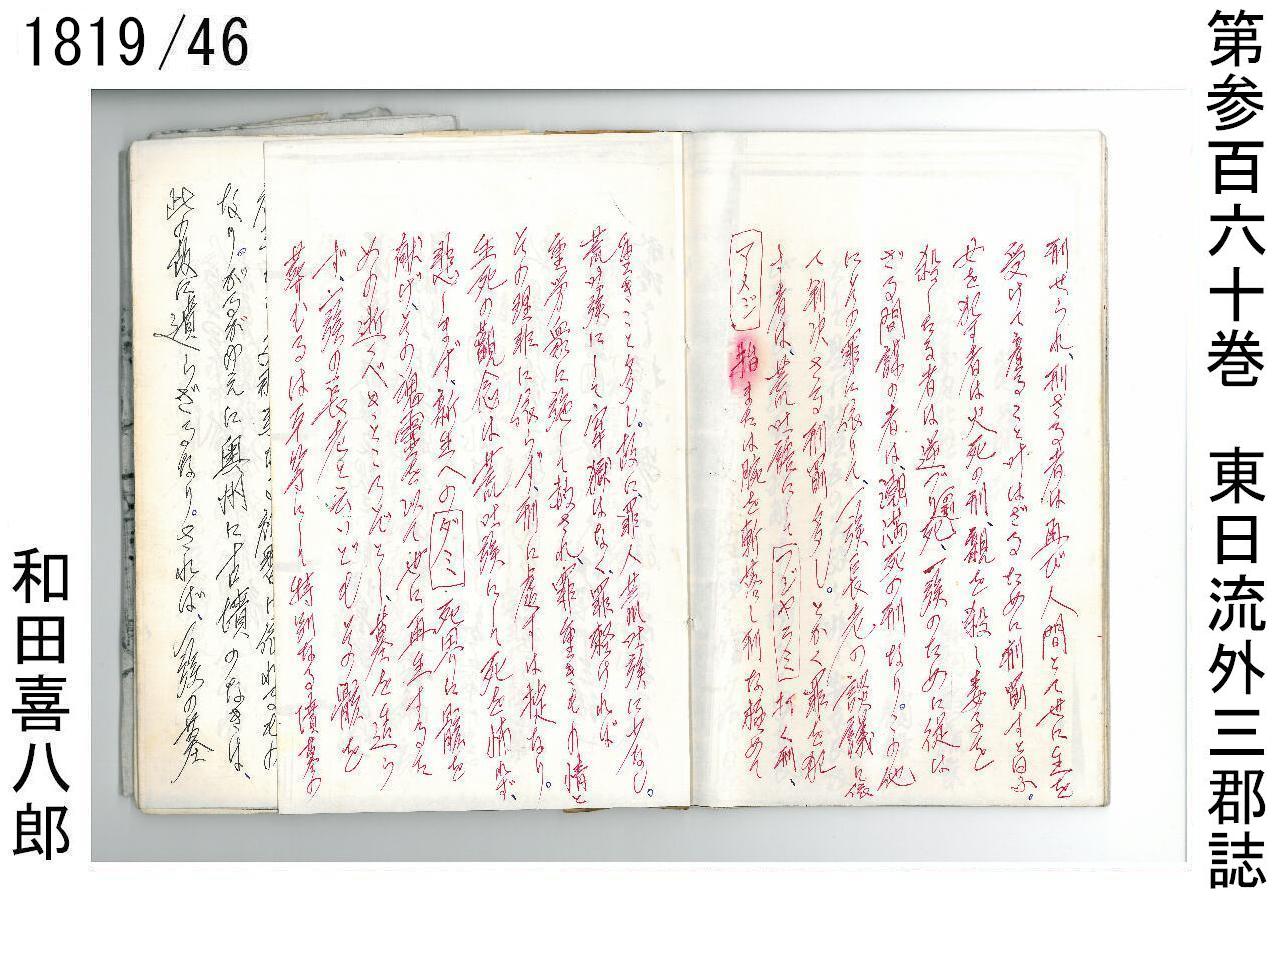 1819/46
第参百六十巻　東日流外三郡誌
刑せられ、刑さる者は再び人間とて世に生を
受けて産るゝこと叶はざるために刑罰すと曰ふ。
せを犯す者は火死の刑、親を殺し妻子を
殺したる者は逆づり死、一族のために従は
ざる間諜の者は、潮満死の刑なり。この他
にその罪に依りて、一族長老の談議に依
て判決さる刑罰多し。とかく罪を犯
す者は、荒吐族にして アジヤラミ 打く刑、
アメジ 指または腕を斬落し刑な極めて
重きこと多し。故に、罪人荒吐族に少なし。
荒吐族にして牢獄はなく、罪軽ければ
重労器に施して赦され、罪重きもの情と
その理非に依らず、刑に處すは掟なり。
生死の観念は荒吐族にして死を怖れず、
悲しまず、新生への ダミ 死界に骸を
献げ、その魂霊を以て世に再生するた
めの逝くべきところぞとし、墓を造ら
ず、一族の長老と云いども、その骸を
葬むるは平等にして特別なる墳墓の
なり。かるがゆえに奥州に古墳のなきは、
此の故に遺らざるなり。されば、一族の墓
和田喜八郎